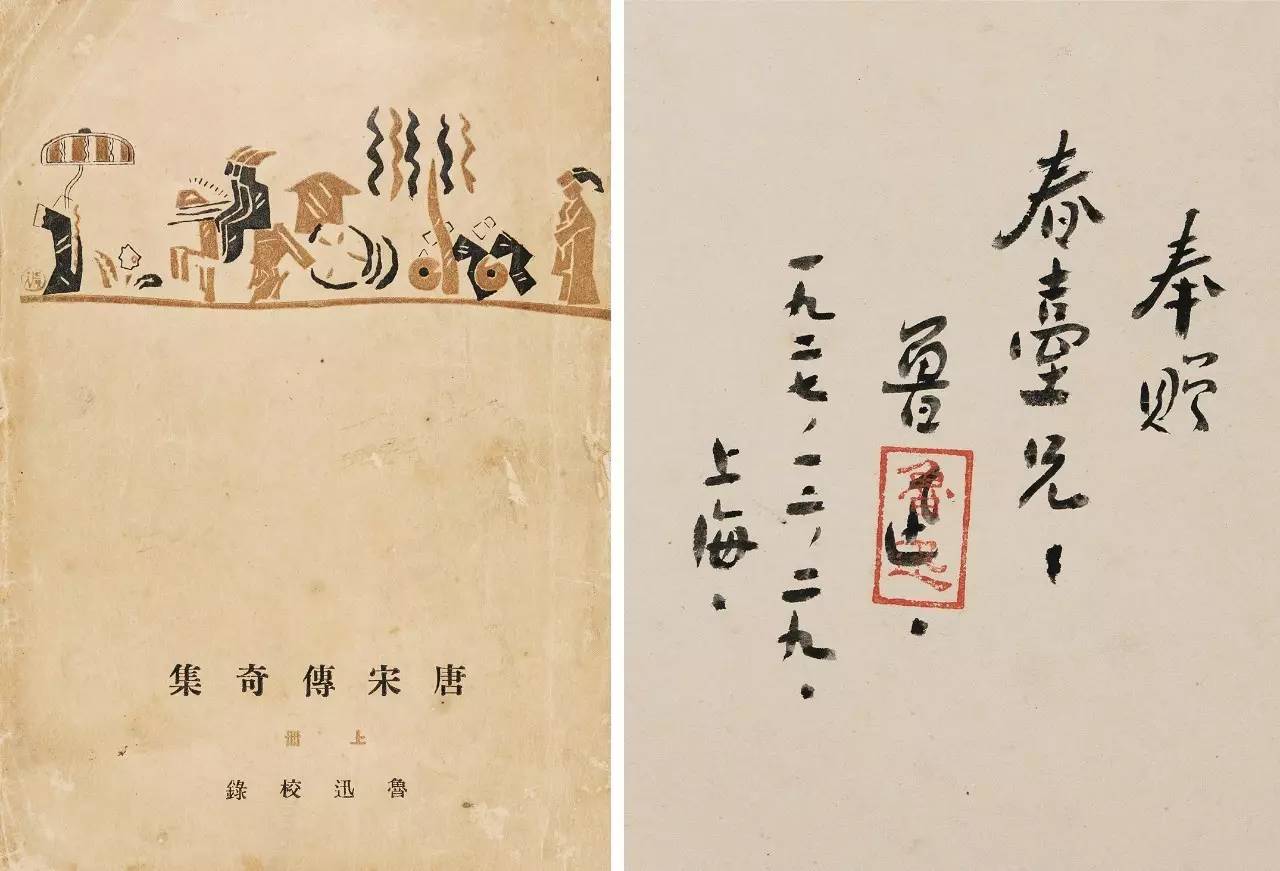 唐宋傳奇集
上冊
魯迅校錄
奉贈
春臺兄.
魯迅.
一九二七,一二,二九.
上海.
魯迅